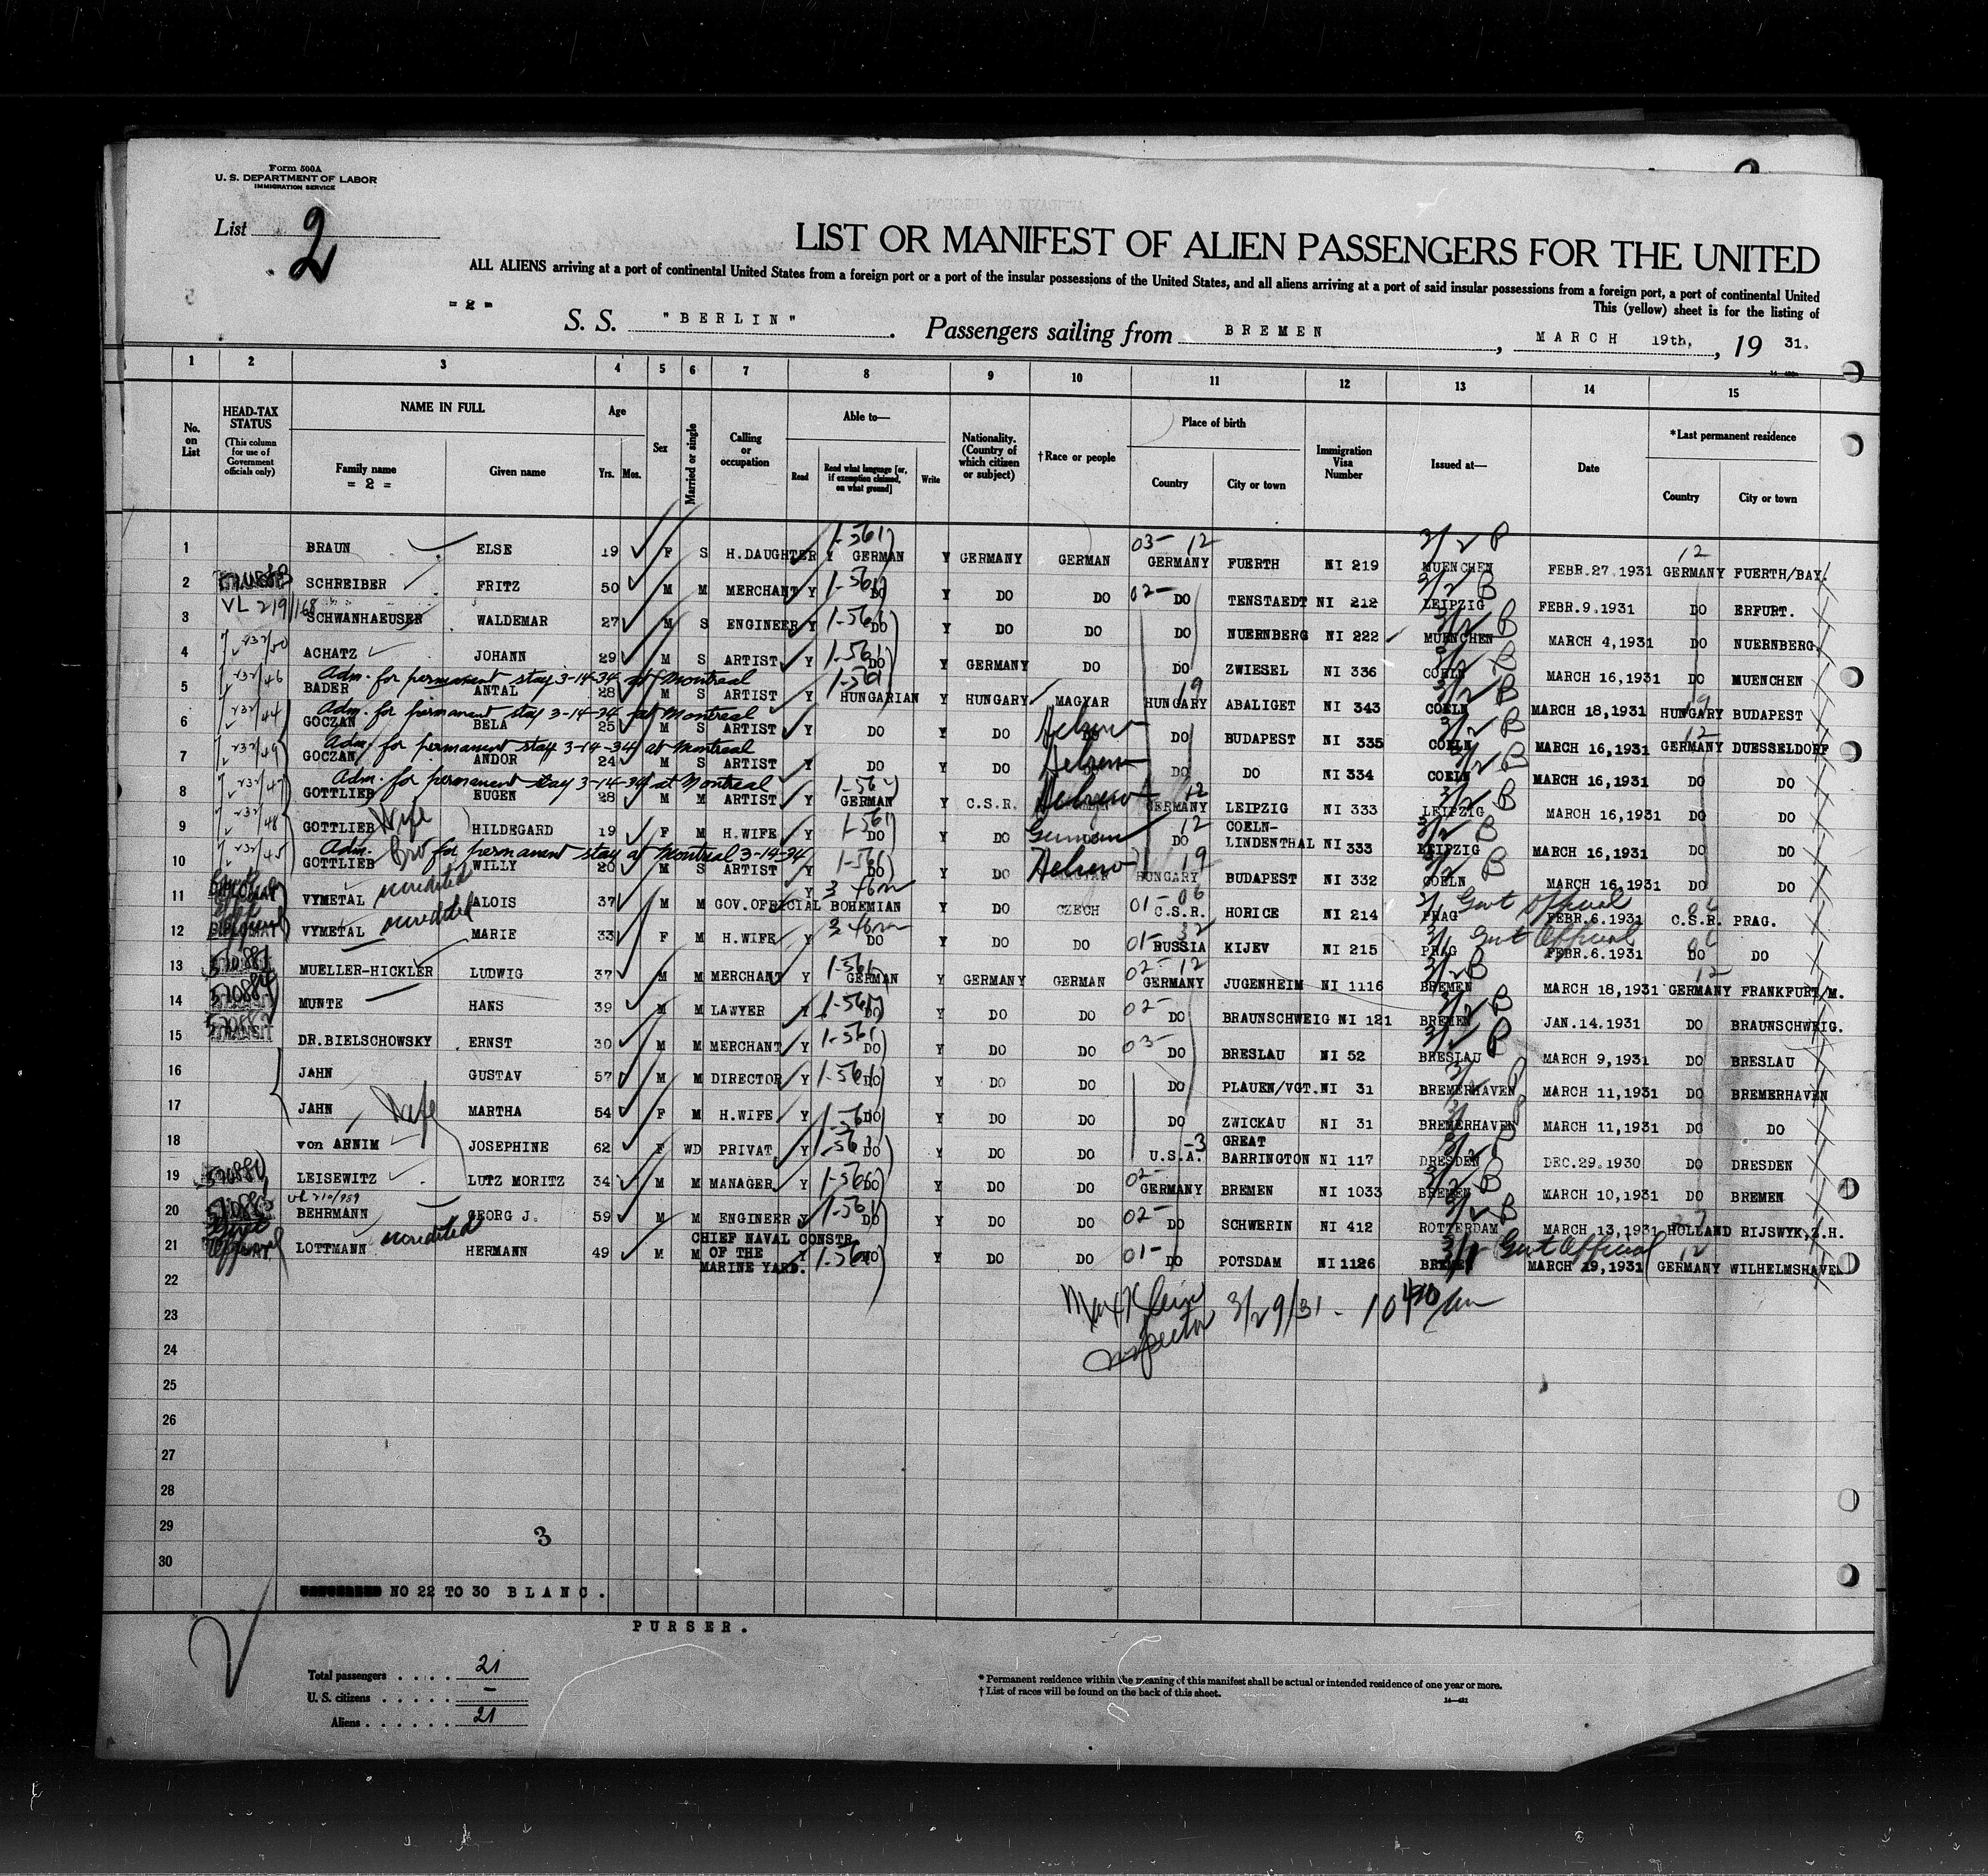 Form 500A
U. S. DEPARTMENT OF LABOR
IMMIGRATION SERVICE
List 2
LIST OR MANIFEST OF ALIEN PASSENGERS FOR THE UNITED
ALL ALIENS arriving at a port of continental United States from a foreign port or a port of the insular possessions of the United States, and all aliens arriving at a port of said insular possessions from a foreign port, a port of continental United
This (yellow) sheet is for the listing of
= 2 =
S. S. "BERLIN". Passengers sailing from BREMEN, MARCH 19th, 1931.
1 2 3 4 5 6 7 8 9 10 11 12 13 14 15
No. on List
HEAD-TAX STATUS (This column for use of Government officials only)
NAME IN FULL
Family name = 2 =
Given name
Age Yrs. Mos.
Sex
Married or single
Calling or occupation
Able to— Read Read what language [or, if exemption claimed, on what ground] Write
Nationality. (Country of which citizen or subject)
†Race or people
Place of birth Country City or town
Immigration Visa Number
Issued at—
Date
*Last permanent residence Country City or town
1 BRAUN ELSE 19 F S H.DAUGHTER Y GERMAN 1-561 Y GERMANY GERMAN 03- 12 GERMANY FUERTH NI 219 MUENCHEN FEBR.27,1931 12 GERMANY FUERTH/BAY.
2 SCHREIBER FRITZ 50 M M MERCHANT Y 1-561 DO Y DO DO 02- DO TENSTAEDT NI 212 LEIPZIG FEBR.9.1931 DO ERFURT.
3 VL 219/168 SCHWANHAEUSER WALDEMAR 27 M S ENGINEER Y 1-561 DO Y DO DO DO NUERNBERG NI 222 MUENCHEN MARCH 4,1931 DO NUERNBERG
4 ACHATZ JOHANN 29 M S ARTIST Y 1-561 DO Y GERMANY DO DO ZWIESEL NI 336 COELN MARCH 16,1931 DO MUENCHEN
Adm. for permanent stay 3-14-34 at Montreal
5 BADER ANTAL 28 M S ARTIST Y 1-561 HUNGARIAN Y HUNGARY MAGYAR 19 HUNGARY ABALIGET NI 343 COELN MARCH 18,1931 19 HUNGARY BUDAPEST
Adm. for permanent stay 3-14-34 at Montreal
6 GOCZAN BELA 25 M S ARTIST Y DO Y DO Hebrew DO BUDAPEST NI 335 COELN MARCH 16,1931 12 GERMANY DUESSELDORF
Adm. for permanent stay 3-14-34 at Montreal
7 GOCZAN ANDOR 24 M S ARTIST Y DO Y DO Hebrew DO DO NI 334 COELN MARCH 16,1931 DO DO
Adm. for permanent stay 3-14-34 at Montreal
8 GOTTLIEB EUGEN 28 M M ARTIST Y 1-56 GERMAN Y C.S.R. Hebrew 12 GERMANY LEIPZIG NI 333 LEIPZIG MARCH 16,1931 DO DO
9 GOTTLIEB Wife HILDEGARD 19 F M H.WIFE Y 1-561 DO Y DO German 12 DO COELN-LINDENTHAL NI 333 LEIPZIG MARCH 16,1931 DO DO
Adm. for permanent stay at Montreal 3-14-34
10 GOTTLIEB Bro WILLY 20 M S ARTIST Y 1-561 DO Y DO Hebrew MAGYAR 19 HUNGARY BUDAPEST NI 332 COELN MARCH 16,1931 DO DO
11 VYMETAL ALOIS 37 M M GOV.OFFICIAL Y BOHEMIAN Y DO CZECH 01- 06 C.S.R. HORICE NI 214 PRAG Govt Official FEBR.6.1931 C.S.R. PRAG.
12 DIPLOMAT VYMETAL MARIE 33 F M H.WIFE Y DO Y DO DO 01- 32 RUSSIA KIJEV NI 215 PRAG Govt Official FEBR.6.1931 DO DO
13 MUELLER-HICKLER LUDWIG 37 M M MERCHANT Y 1-561 GERMAN Y GERMANY GERMAN 02- 12 GERMANY JUGENHEIM NI 1116 BREMEN MARCH 18,1931 12 GERMANY FRANKFURT/M.
14 MUNTE HANS 39 M M LAWYER Y 1-561 DO Y DO DO 02- DO BRAUNSCHWEIG NI 121 BREMEN JAN.14.1931 DO BRAUNSCHWEIG.
15 TRANSIT DR.BIELSCHOWSKY ERNST 30 M M MERCHANT Y 1-561 DO Y DO DO 03- DO BRESLAU NI 52 BRESLAU MARCH 9,1931 DO BRESLAU
16 JAHN GUSTAV 57 M M DIRECTOR Y 1-561 DO Y DO DO DO PLAUEN/VGT. NI 31 BREMERHAVEN MARCH 11,1931 DO BREMERHAVEN
17 JAHN Wife MARTHA 54 F M H.WIFE Y 1-56 DO Y DO DO DO ZWICKAU NI 31 BREMERHAVEN MARCH 11,1931 DO DO
18 von ARNIM JOSEPHINE 62 F WD PRIVAT Y 1-561 DO Y DO DO -3 U.S.A. GREAT BARRINGTON NI 117 DRESDEN DEC.29.1930 DO DRESDEN
19 LEISEWITZ LUTZ MORITZ 34 M M MANAGER Y 1-56 DO Y DO DO 02- GERMANY BREMEN NI 1033 BREMEN MARCH 10,1931 DO BREMEN
20 BEHRMANN GEORG J. 59 M M ENGINEER Y 1-561 DO Y DO DO 02- DO SCHWERIN NI 412 ROTTERDAM MARCH 13,1931 HOLLAND RIJSWYK,Z.H.
21 LOTTMANN HERMANN 49 M M CHIEF NAVAL CONSTR. OF THE MARINE YARD. Y 1-561 DO Y DO DO 01- DO POTSDAM NI 1126 BREMEN Govt Official MARCH 19,1931 12 GERMANY WILHELMSHAVEN
22
23 Max Klein Inspector 3/29/31 - 10
24
25
26
27
28
29
3
30
NO 22 TO 30 BLANC.
PURSER.
Total passengers . . . . 21
U. S. citizens . . . . . -
Aliens . . . . . . 21
* Permanent residence within the meaning of this manifest shall be actual or intended residence of one year or more.
† List of races will be found on the back of this sheet.